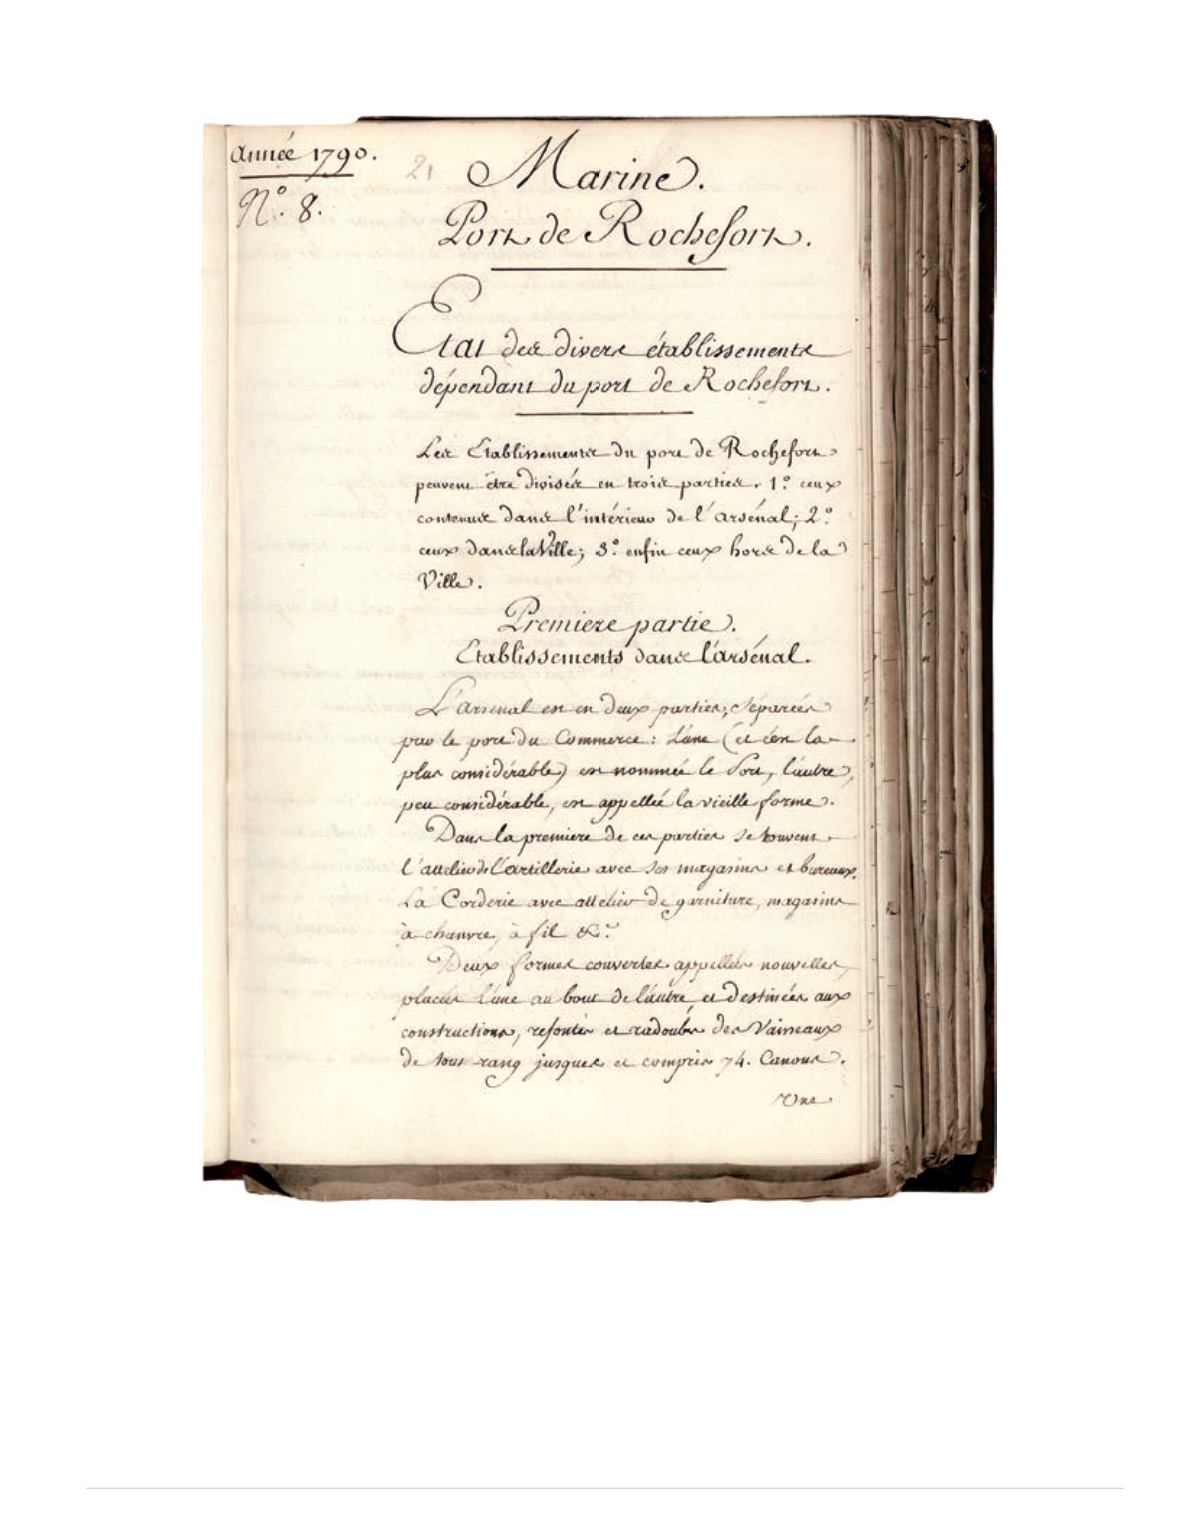 Année 1790.
N.º 8.
21
Marine.
Port de Rochefort.
Etat des divers établissements
dépendant du port de Rochefort.
Les Etablissements du port de Rochefort
peuvent être divisés en trois parties. 1.º ceux
contenus dans l'intérieur de l'arsénal; 2.º
ceux dans la Ville; 3.º enfin ceux hors de la
Ville.
Premiere partie.
Etablissements dans l'arsénal.
L'arsenal est en deux parties, séparées
par le port du Commerce: l'une (et c'est la
plus considérable) est nommée le Port, l'autre,
peu considérable, est appellée la vieille forme.
Dans la premiere de ces parties se trouvent
l'attelier de l'artillerie avec ses magasins et bureaux.
La Corderie avec attelier de garniture, magasins
à chanvre, à fil &c.
Deux formes couvertes appellées nouvelles,
placées l'une au bout de l'autre, et destinées aux
constructions, refontes et radoubs des Vaisseaux
de tout rang jusques et compris 74. Canons.
Une